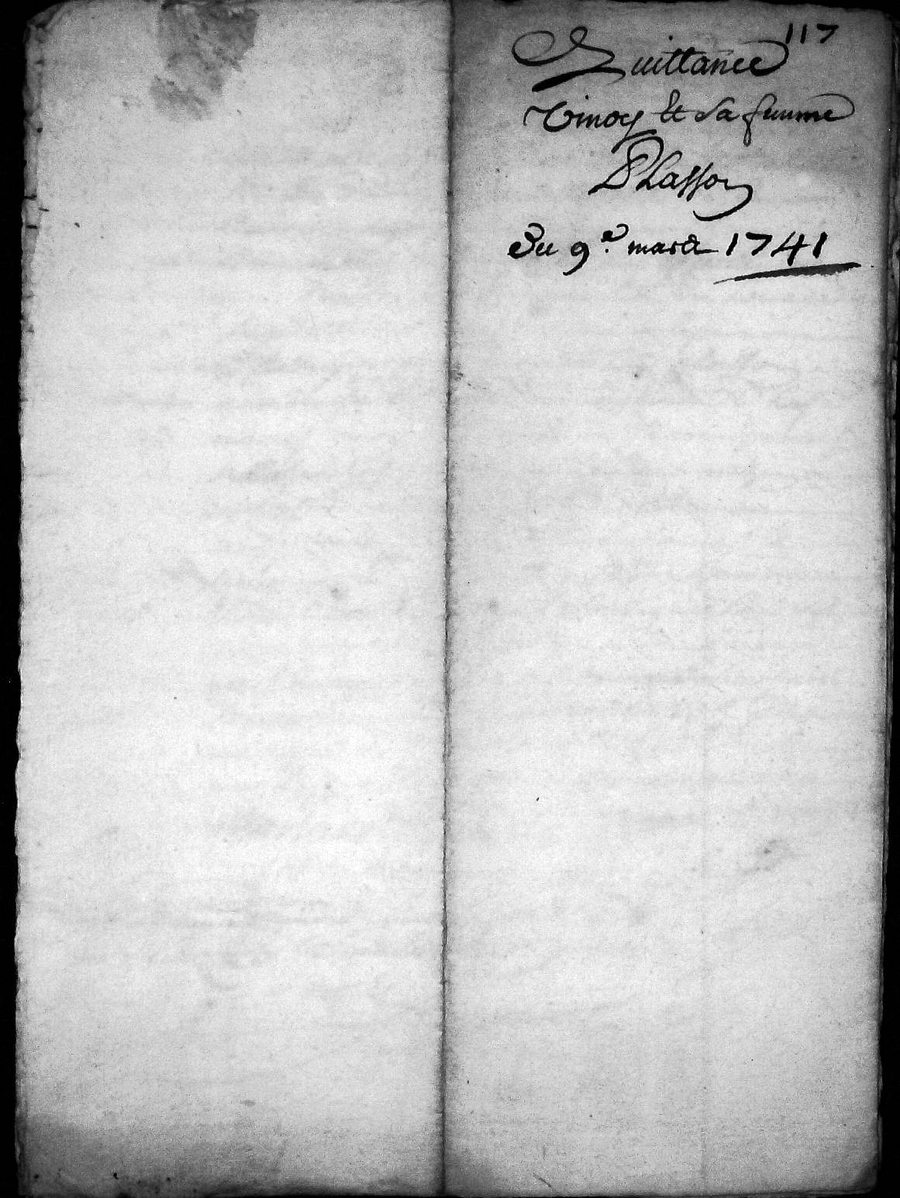 117
Quittance
Vinoy et sa femme
Du 9.e mars 1741